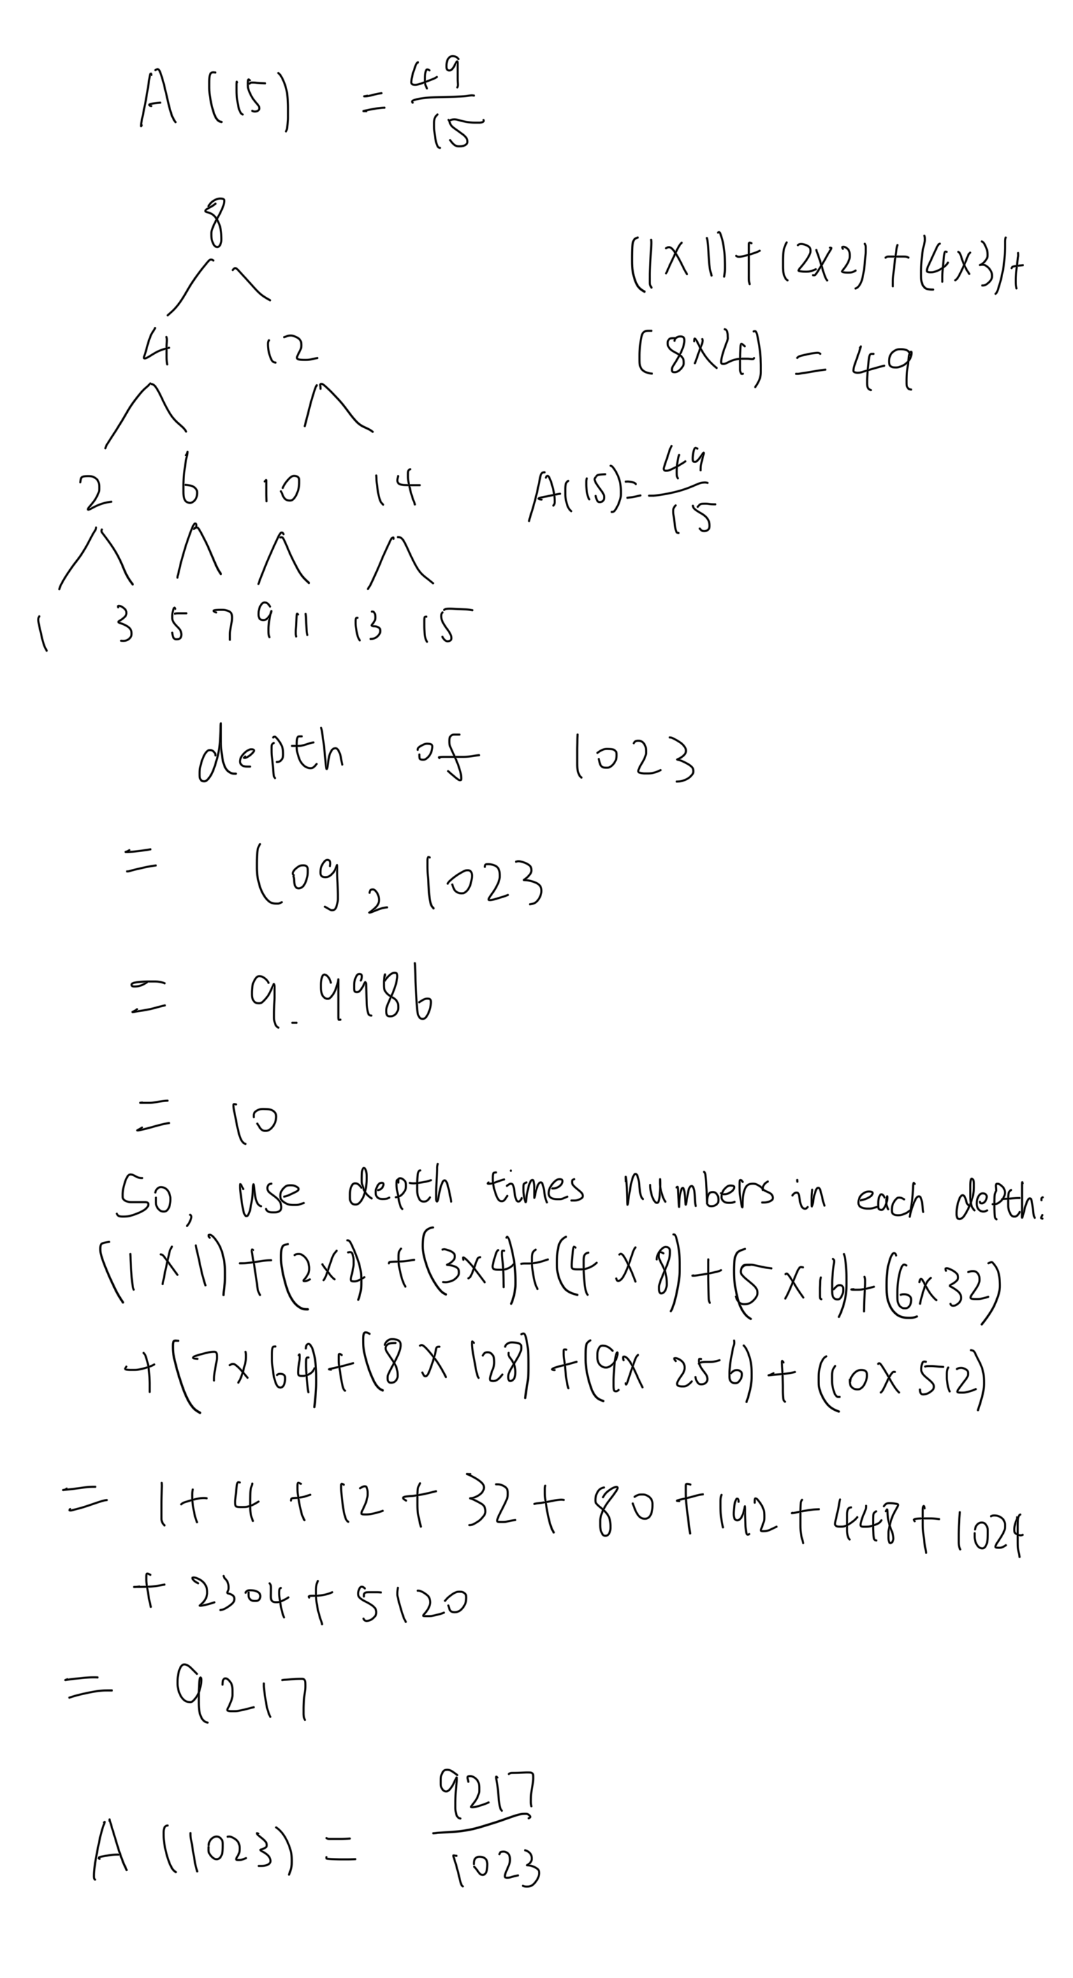 A (15) = 49/15
8
(1×1)+(2×2)+(4×3)+
4 12
(8×4) = 49
2 6 10 14
A(15)=49/15
1 3 5 7 9 11 13 15
depth of 1023
= log₂ 1023
= 9.9986
= 10
So, use depth times numbers in each depth:
(1×1)+(2×2)+(3×4)+(4×8)+(5×16)+(6×32)
+(7×64)+(8×128)+(9×256)+(10×512)
= 1+4+12+32+80+192+448+1024
+2304+5120
= 9217
A (1023) = 9217/1023